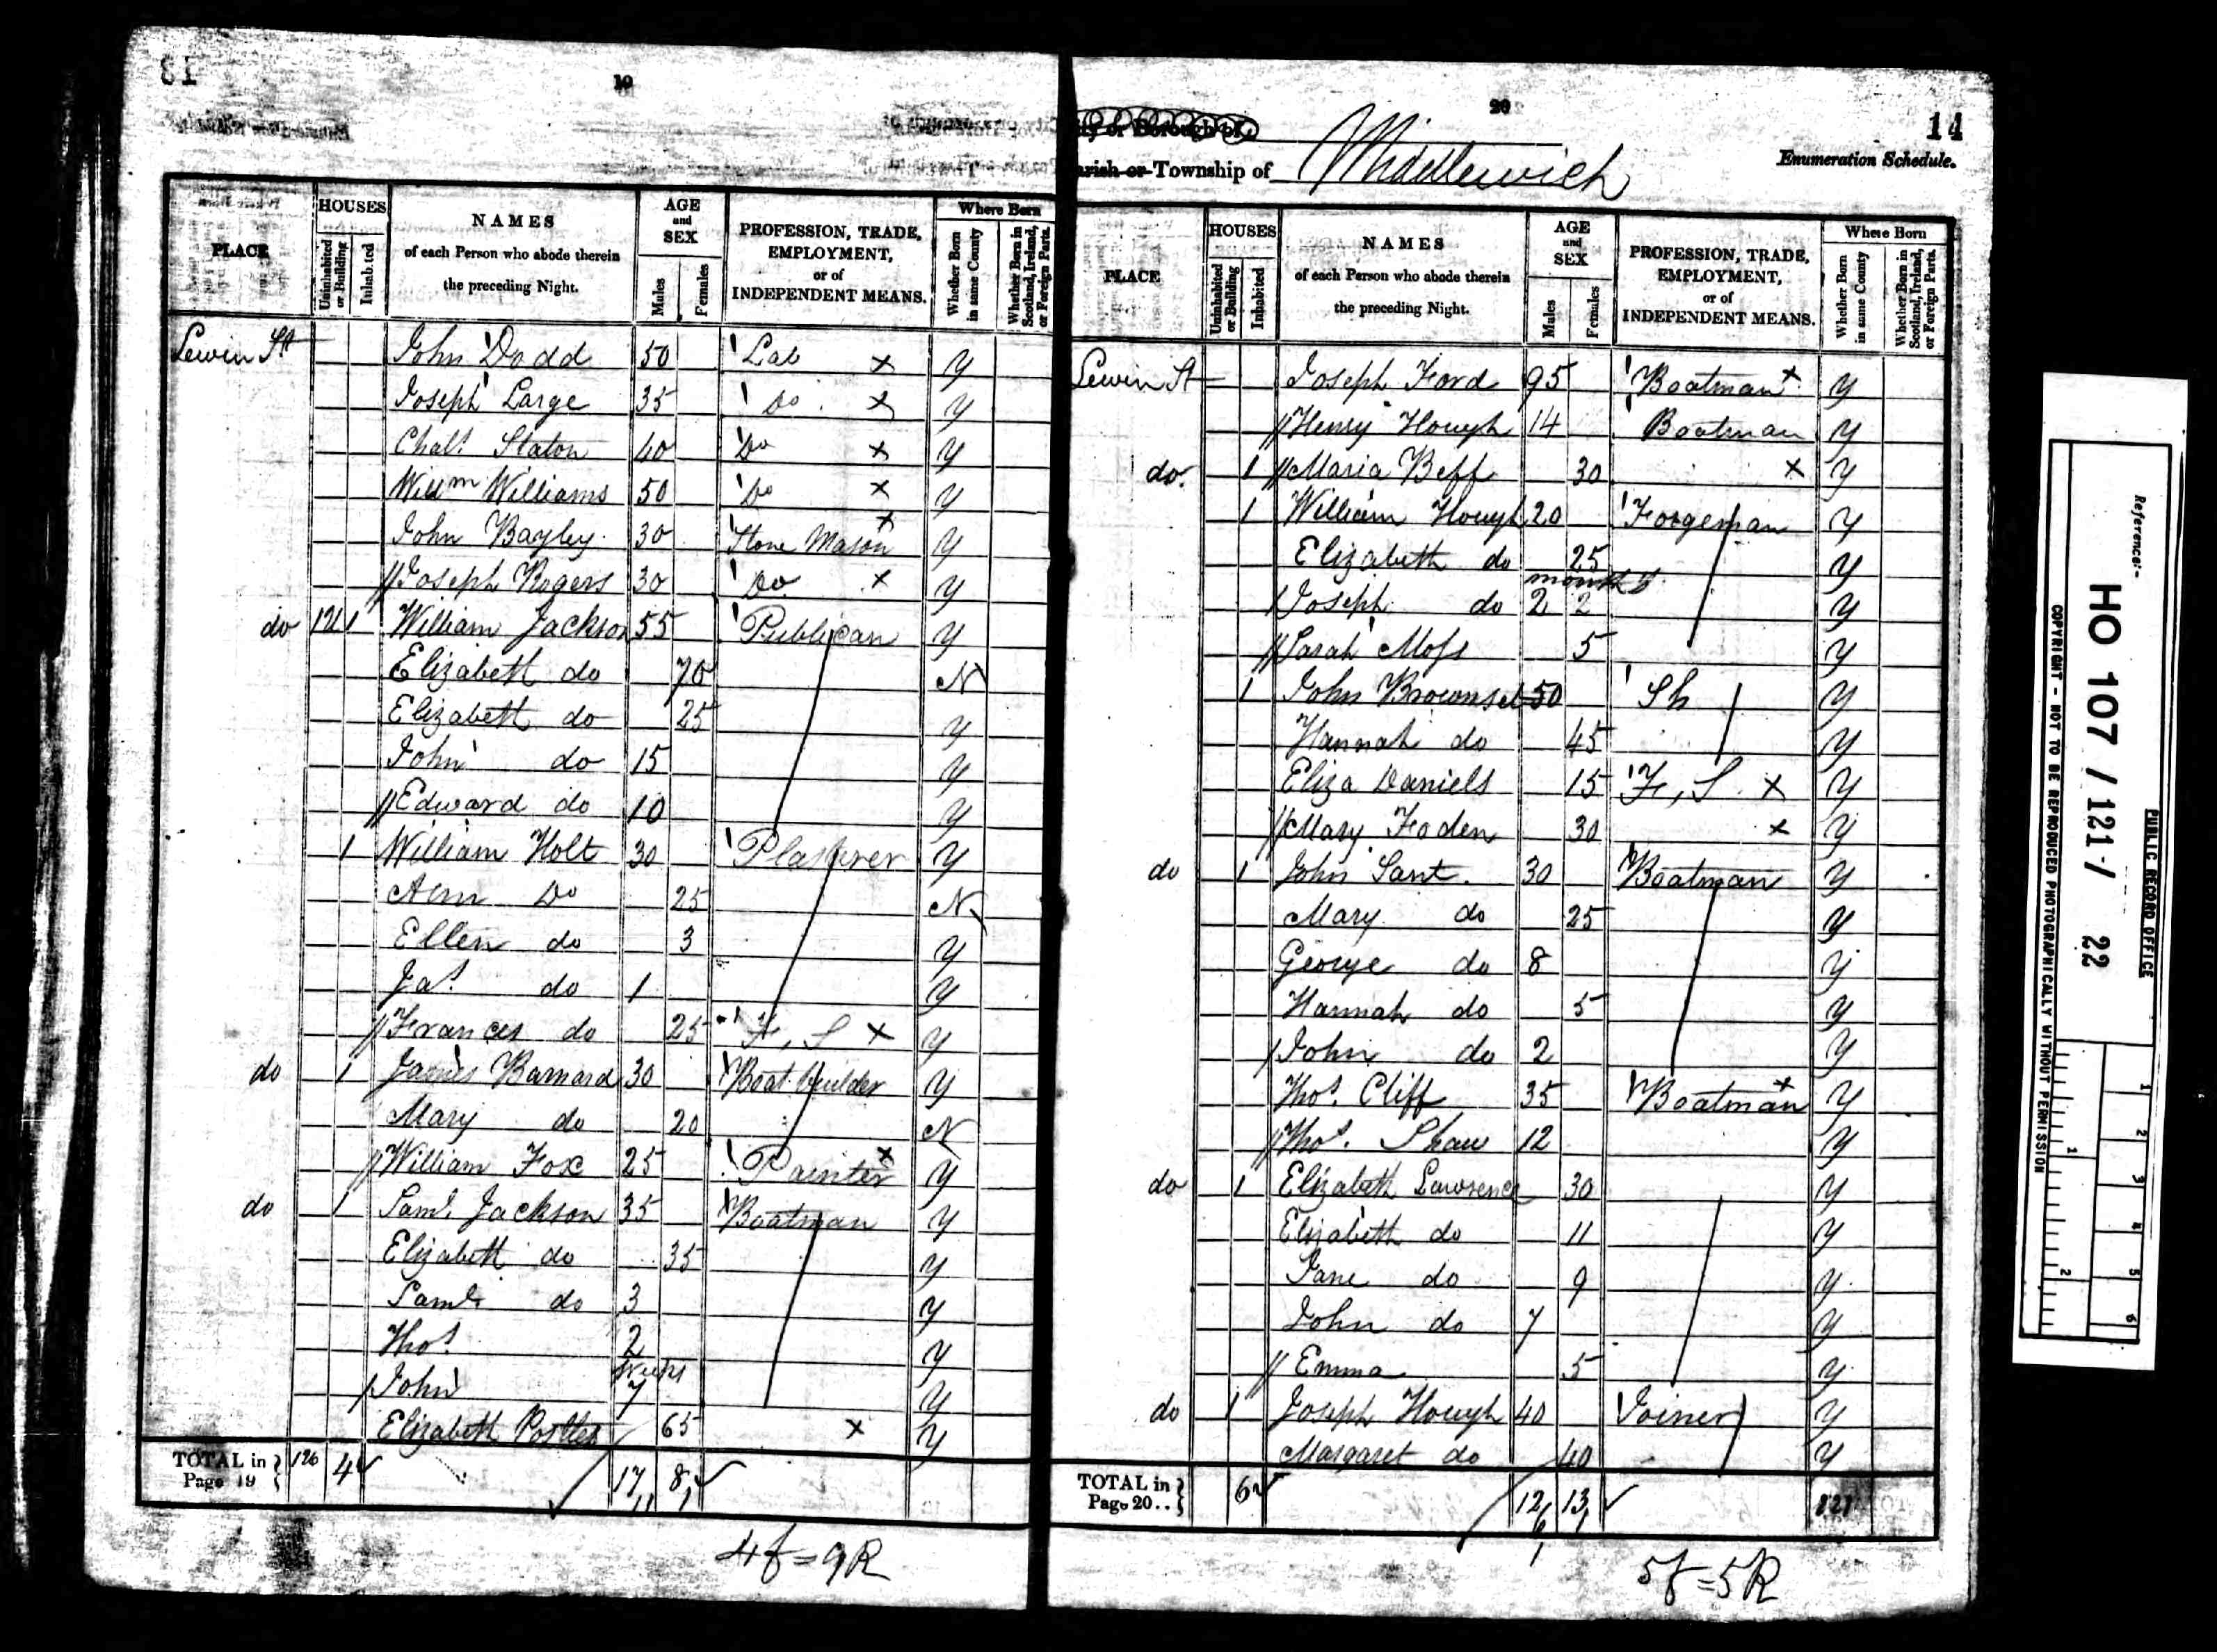 19
PLACE
HOUSES
Uninhabited or Building
Inhabited
NAMES
of each Person who abode therein
the preceding Night.
AGE
and
SEX
Males
Females
PROFESSION, TRADE,
EMPLOYMENT,
or of
INDEPENDENT MEANS.
Where Born
Whether Born in same County
Whether Born in Scotland, Ireland, or Foreign Parts.
Lewin St John Dodd 50 Lab x y
Joseph Large 35 Do x y
Chas. Slaton 40 Do x y
Willm Williams 50 Do x y
John Bayley 30 Stone Mason x y
Joseph Rogers 30 Do x y
do 1 William Jackson 55 Publican y
Elizabeth do 70 N
Elizabeth do 25 y
John do 15 y
Edward do 10 y
1 William Holt 30 Plasterer y
Ann Do 25 N
Ellen do 3 y
Jas. do 1 y
Frances do 25 F, S x y
do 1 James Barnard 30 Boat builder y
Mary do 20 N
William Fox 25 Painter x y
do 1 Saml. Jackson 35 Boatman y
Elizabeth do 35 y
Saml. do 3 y
Thos. 2 y
John 7 weeks y
Elizabeth 65 x y
TOTAL in Page 19 126 4 17 8
11 1
4f=9R
20
14
City or Borough of
Parish or Township of Middlewich
Enumeration Schedule.
PLACE
HOUSES
Uninhabited or Building
Inhabited
NAMES
of each Person who abode therein
the preceding Night.
AGE
and
SEX
Males
Females
PROFESSION, TRADE,
EMPLOYMENT,
or of
INDEPENDENT MEANS.
Where Born
Whether Born in same County
Whether Born in Scotland, Ireland, or Foreign Parts.
Lewin St Joseph Ford 95 Boatman x y
Henry Hough 14 Boatman y
do. 1 Maria Beff 30 x y
1 William Hough 20 Forgeman y
Elizabeth do 25 y
Joseph do 2 months y
Sarah Moss 5 y
1 John 50 Sh y
Hannah do 45 y
Eliza Daniels 15 F, S x y
Mary Foden 30 x y
do 1 John Sant. 30 Boatman y
Mary do 25 y
George do 8 y
Hannah do 5 y
John do 2 y
Thos. Cliff 35 Boatman x y
Thos. Shaw 12 y
do 1 Elizabeth Lawrence 30 y
Elizabeth do 11 y
Jane do 9 y
John do 7 y
Emma 5 y
do 1 Joseph Hough 40 Joiner y
Margaret do 40 y
TOTAL in Page 20.. 6 12 13
5f=5R
Reference:-
HO 107 / 121 / 22
PUBLIC RECORD OFFICE
COPYRIGHT - NOT TO BE REPRODUCED PHOTOGRAPHICALLY WITHOUT PERMISSION
1 2 3 4 5 6
1 2